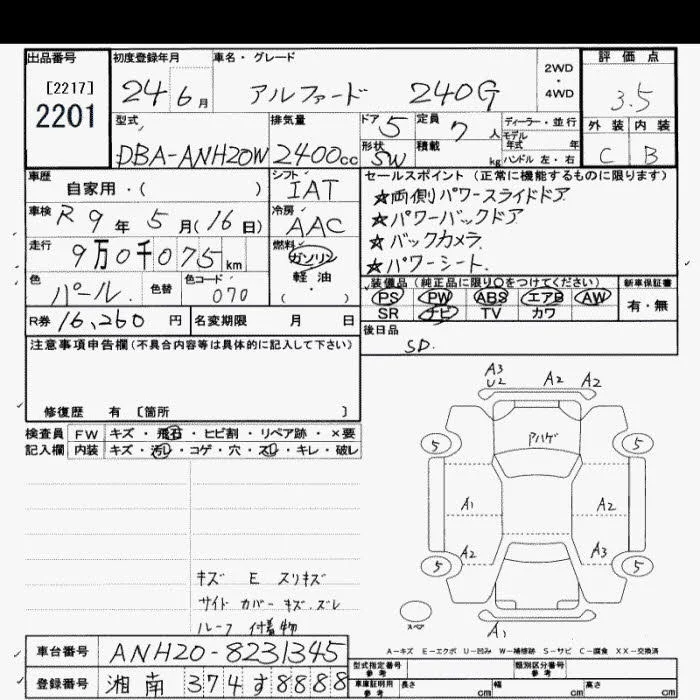 出品番号
[2217]
2201
初度登録年月
24 6月
車名・グレード
アルファード 240G
2WD
・
4WD
評価点
3.5
外装 内装
C B
型式
DBA-ANH20W
排気量
2400cc
ドア 5
定員 7人
形状 SW
積載 kg
ディーラー・並行
モデル
年式 年
ハンドル 左・右
車歴
自家用・( )
シフト
IAT
車検 R9年5月(16日)
冷房
AAC
走行
9万0千075km
燃料
ガソリン
軽油
・
( )
色
パール.
色替
色コード
070
セールスポイント(正常に機能するものに限ります)
☆両側パワースライドドア
☆パワーバックドア
☆バックカメラ
☆パワーシート.
装備品(純正品に限り○をつけてください)
PS PW ABS エアB AW
SR ナビ TV カワ
新車保証書
有・無
R券 16,260円
名変期限 月 日
後日品
SD.
注意事項申告欄(不具合内容等は具体的に記入して下さい)
修復歴 有 [箇所 ]
検査員 FW キズ・飛石・ヒビ割・リペア跡・×要
記入欄 内装 キズ・汚レ・コゲ・穴・スレ・キレ・破レ
A3
U2
A2 A2
アハゲ
5 5
A1 A2
A2 A3
5 5
スペア
A1
キズ E スリキズ
サイドカバーキズ.ズレ
ルーフ 付着物
A-キズ E-エクボ U-凹み W-補修跡 S-サビ C-腐食 XX-交換済
車台番号 ANH20-8231345
登録番号 湘南 374す8888
型式指定番号
参考
類別区分番号
参考
車庫証明用
参考
長さ cm 幅 cm 高さ cm